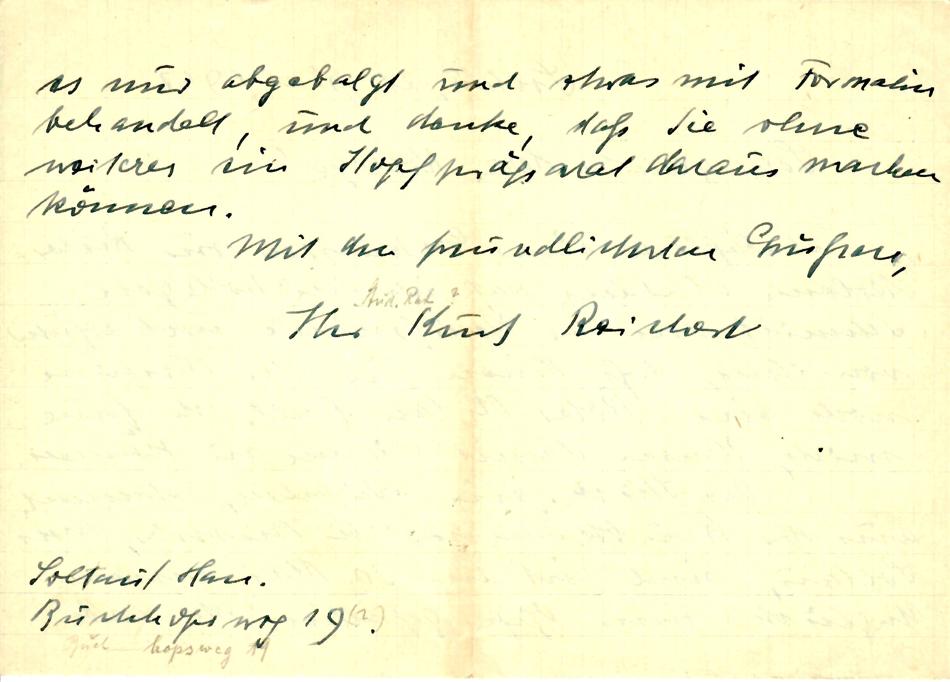 es nur abgebalgt und etwas mit Formalin
behandelt, und denke, daß Sie ohne
weiteres ein Kopfpräparat daraus machen
können.
Mit den freundlichsten Grüßen,
Stud. Rat ?
Ihr Kurt Reichert
Soltau / Han.
Buchhopsweg 19 (?).
Buch hopsweg 19